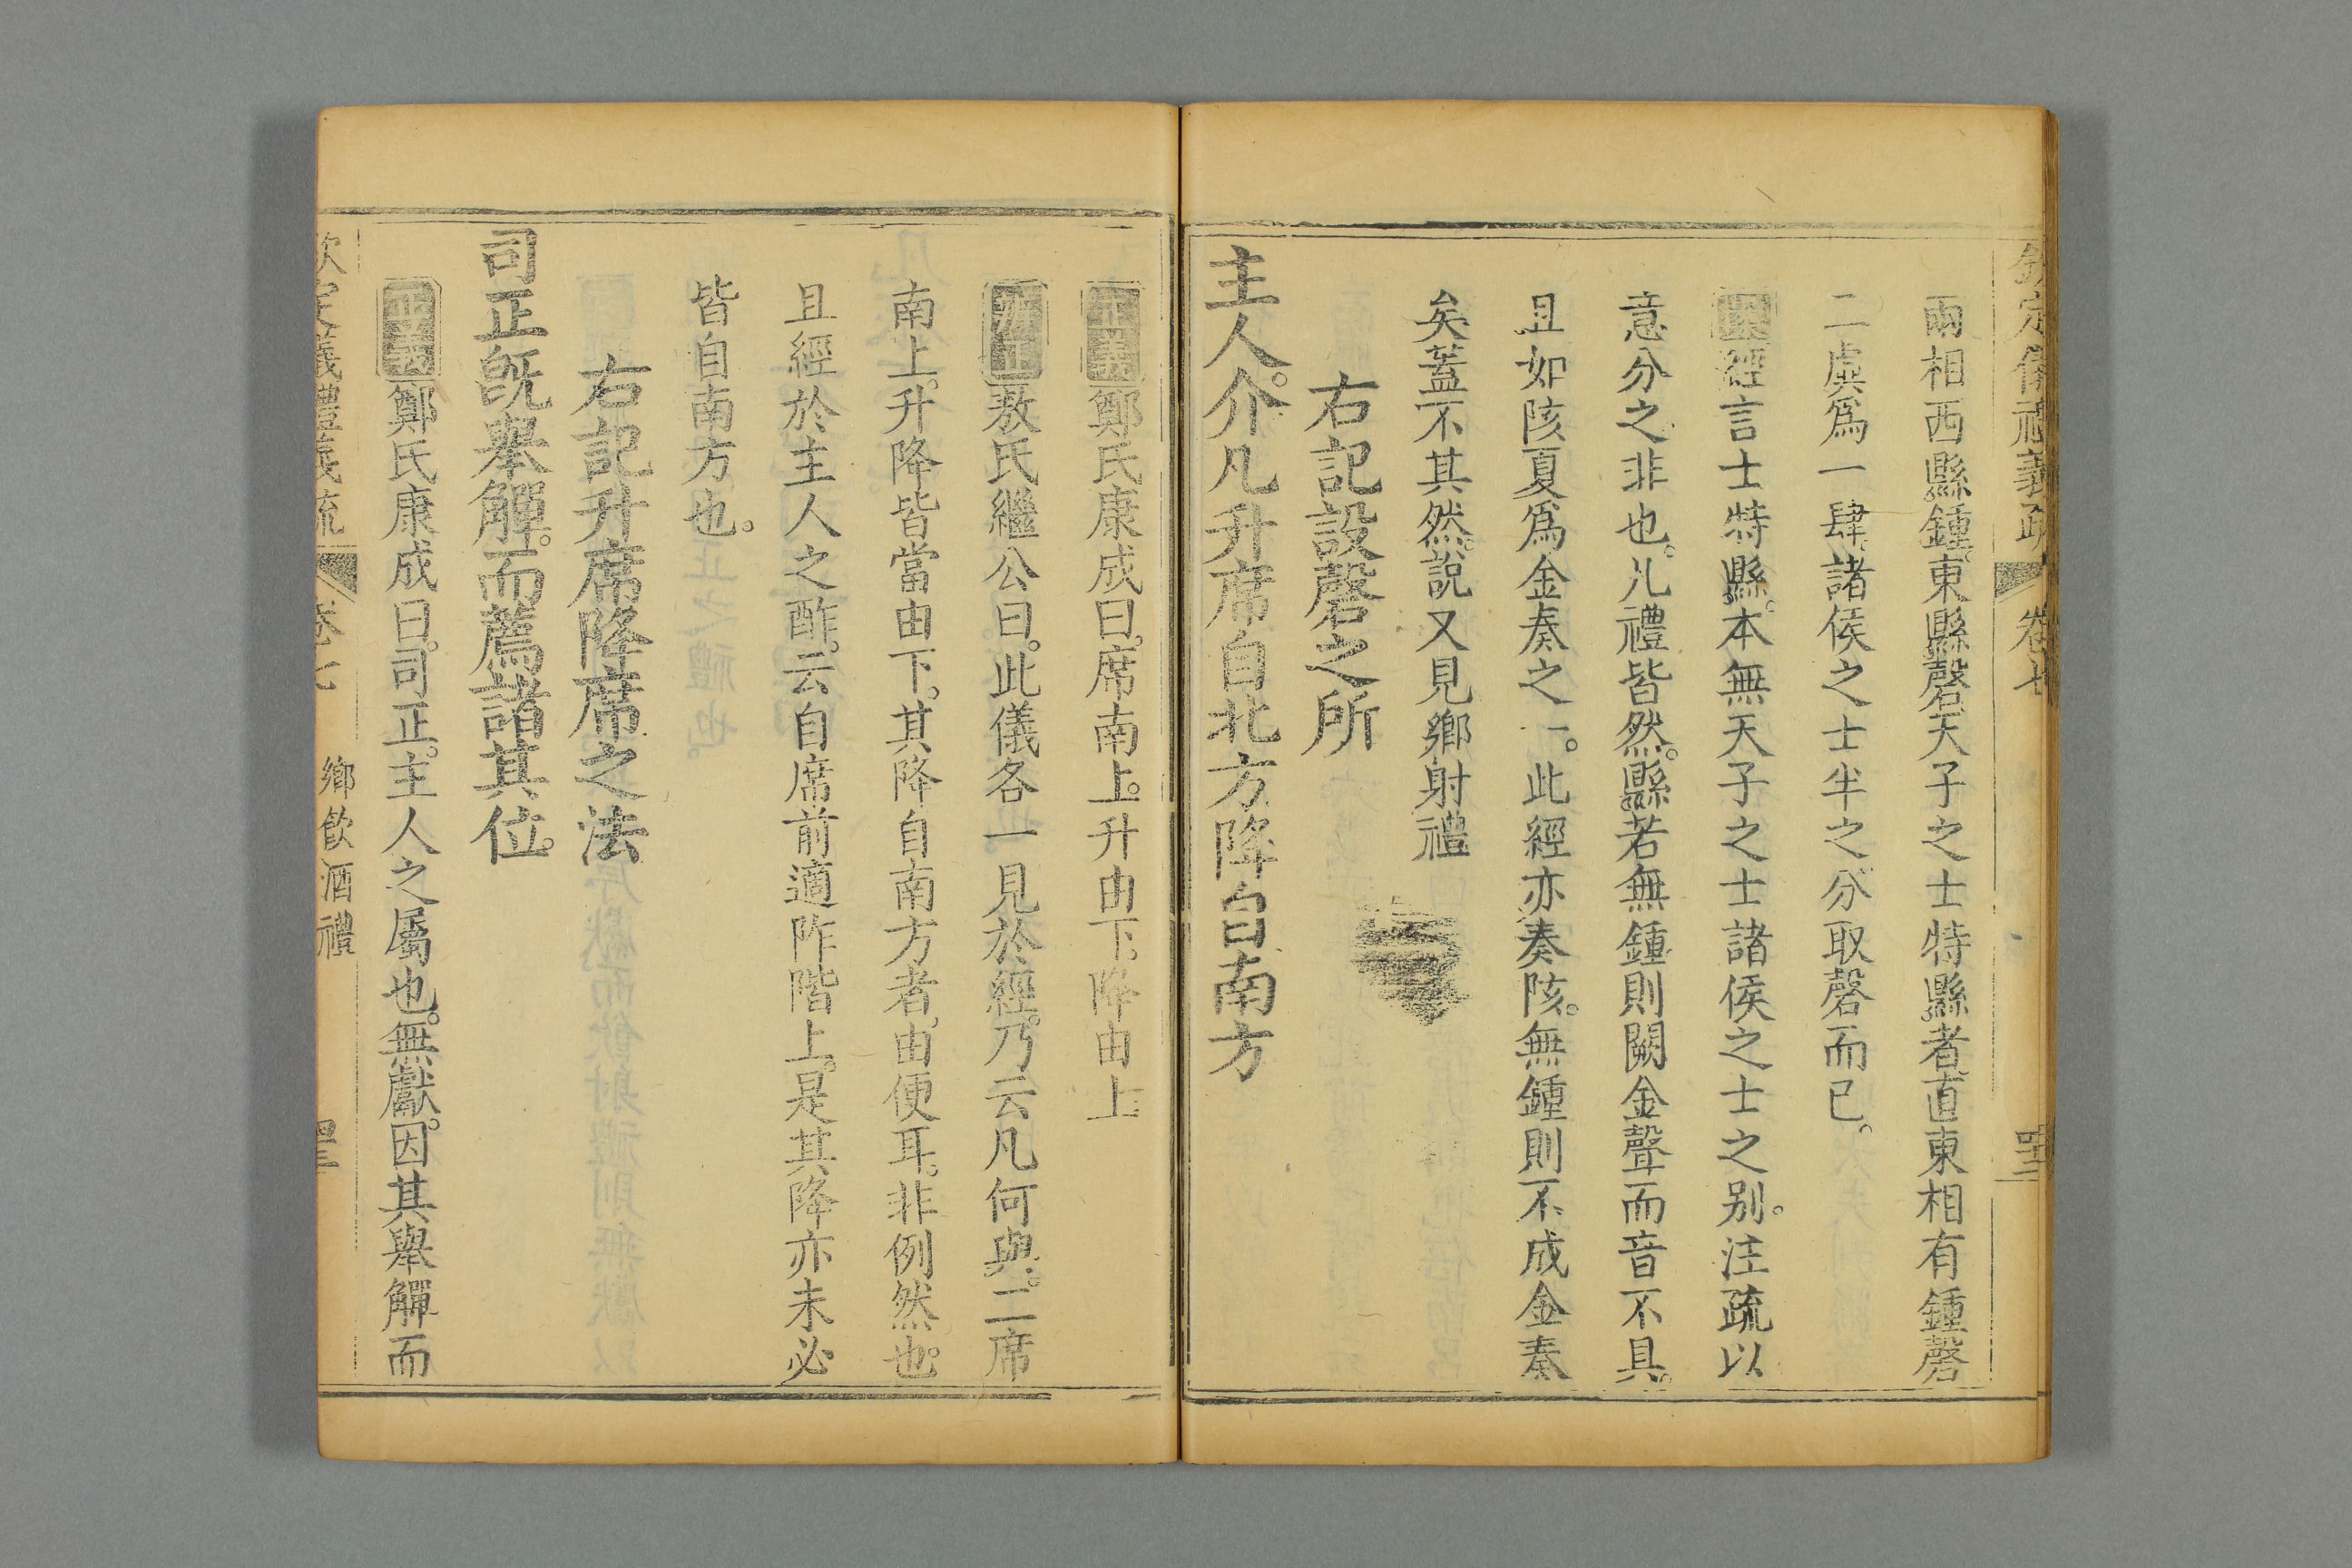 欽定儀禮義疏 卷七
兩相西縣鍾。東縣磬。天子之士特縣者。直東相有鍾磬
二虡爲一肆。諸侯之士半之。分取磬而已。
案經言士特縣。本無天子之士諸侯之士之别。注疏以
意分之非也。凡禮皆然。縣若無鍾則闕金聲而音不具。
且如陔夏爲金奏之一。此經亦奏陔。無鍾則不成金奏
矣蓋不其然。說又見鄉射禮
右記設磬之所
主人。介凡升席自北方降自南方
正義鄭氏康成曰。席南上。升由下。降由上
存疑敖氏繼公曰。此儀各一見於經。乃云凡何與。二席
南上。升降皆當由下。其降自南方者。由便耳。非例然也。
且經於主人之酢。云自席前適阼階上。是其降亦未必
皆自南方也。
右記升席降席之法
司正旣舉觶。而薦諸其位。
正義鄭氏康成曰。司正。主人之屬也。無獻。因其舉觶而
欽定儀禮義疏 卷七 鄉飲酒禮